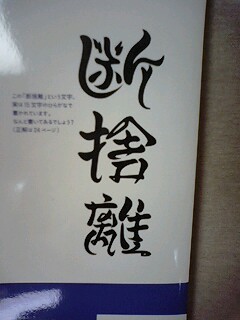 断捨離
この「断捨離」という文字、
実は15文字のひらがなで
書かれています。
なんと書いてあるでしょう?
(正解は36ページ)